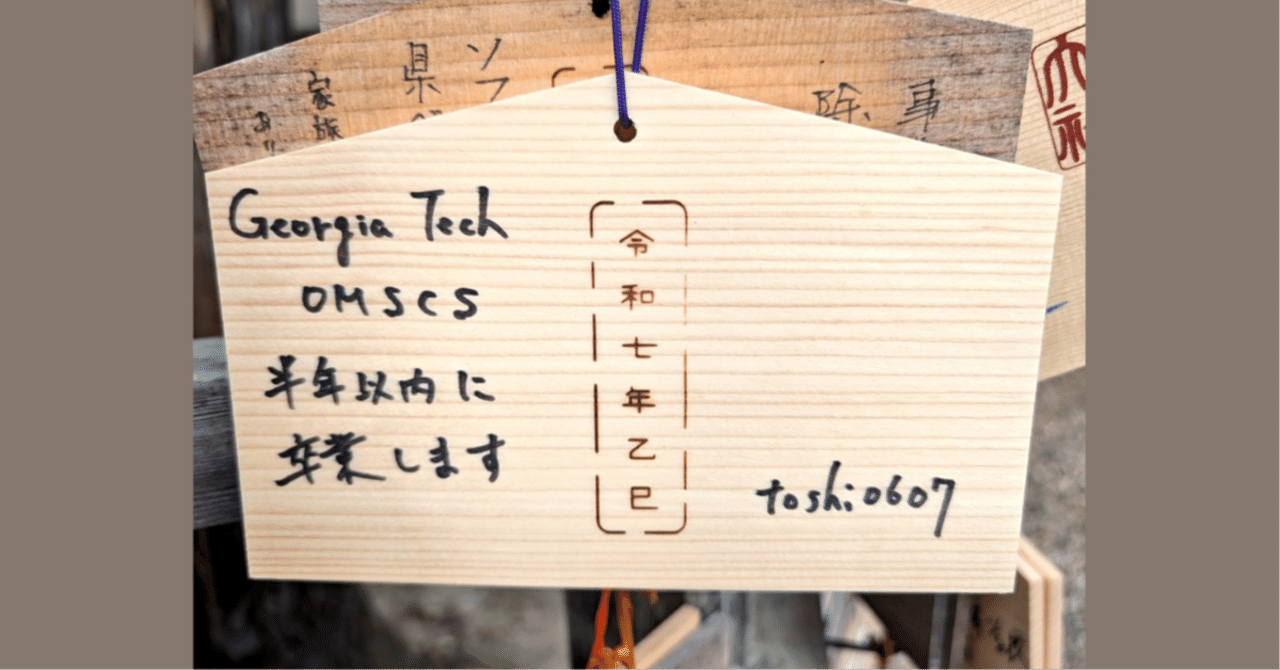 Georgia Tech
OMSCS
半年以内に
卒業します
令和七年乙巳
toshi0607
県
ソフ
家族
あり
除
事
大社